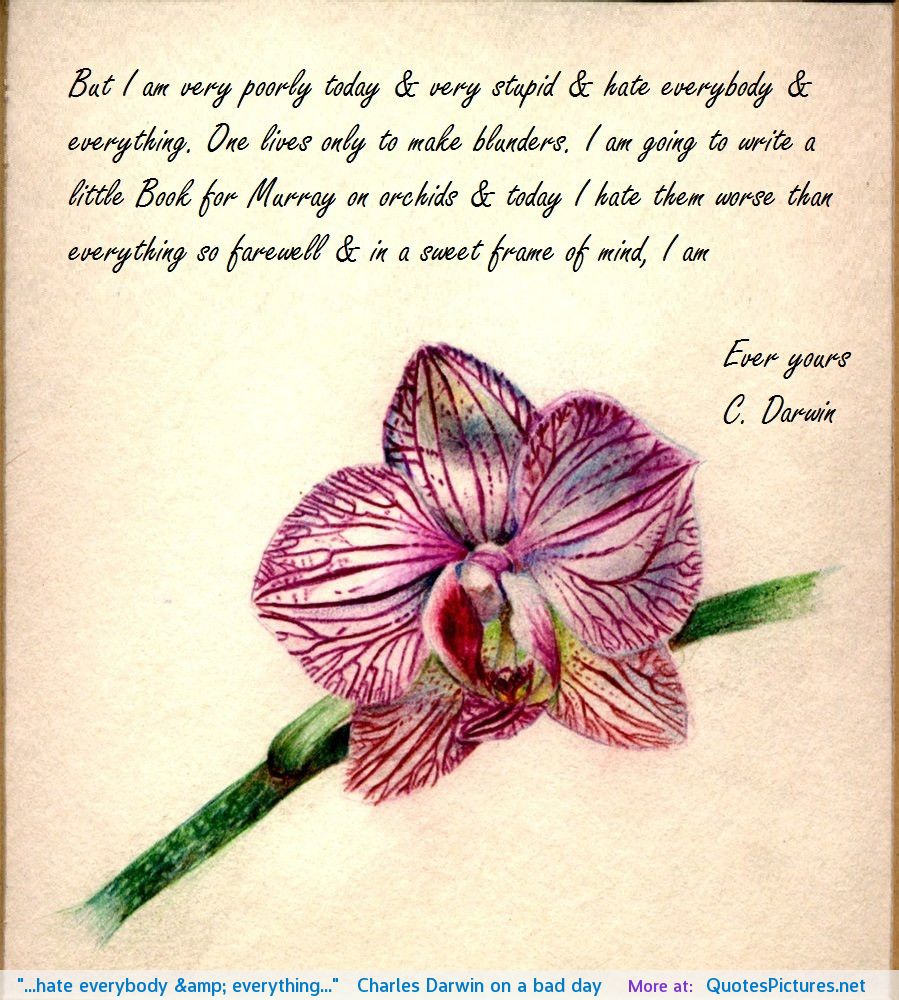 But I am very poorly today & very stupid & hate everybody &
everything. One lives only to make blunders. I am going to write a
little Book for Murray on orchids & today I hate them worse than
everything so farewell & in a sweet frame of mind, I am
Ever yours
C. Darwin
"...hate everybody &amp; everything..." Charles Darwin on a bad day More at: QuotesPictures.net